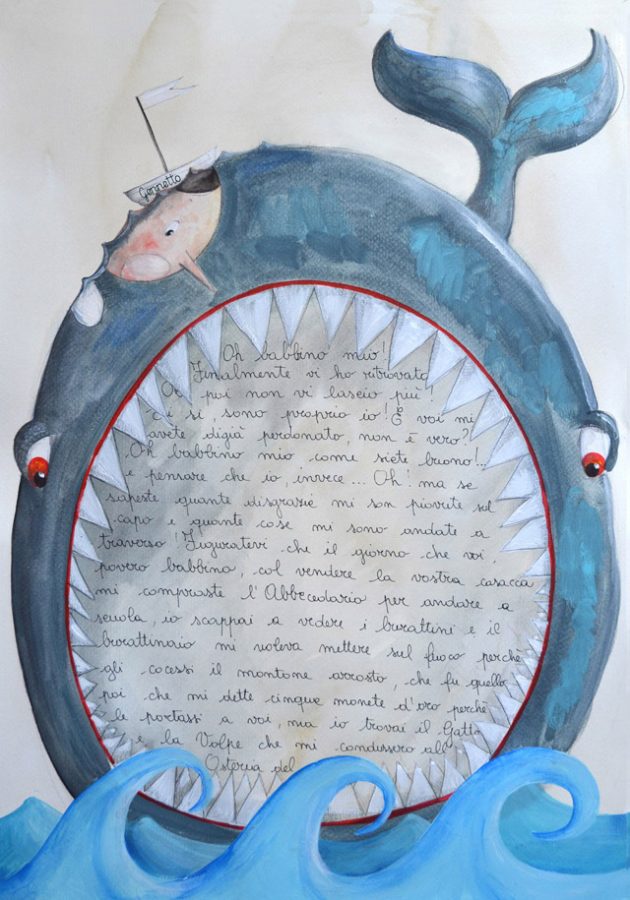 Geppetto
Oh babbino mio!
Finalmente vi ho ritrovato
poi non vi lascio più!
sì, sono proprio io! E voi mi
avete digià perdonato, non è vero?
Oh babbino mio come siete buono!..
e pensare che io, invece... Oh! ma se
sapeste quante disgrazie mi son piovute sul
capo e quante cose mi sono andate a
traverso! Figuratevi che il giorno che voi,
povero babbino, col vendere la vostra casacca
mi compraste l'Abbecedario per andare a
scuola, io scappai a vedere i burattini e il
burattinaio mi voleva mettere sul fuoco perché
gli cocessi il montone arrosto, che fu quello
poi che mi dette cinque monete d'oro perché
le portassi a voi, ma io trovai il Gatto
e la Volpe che mi condussero all'
Osteria del